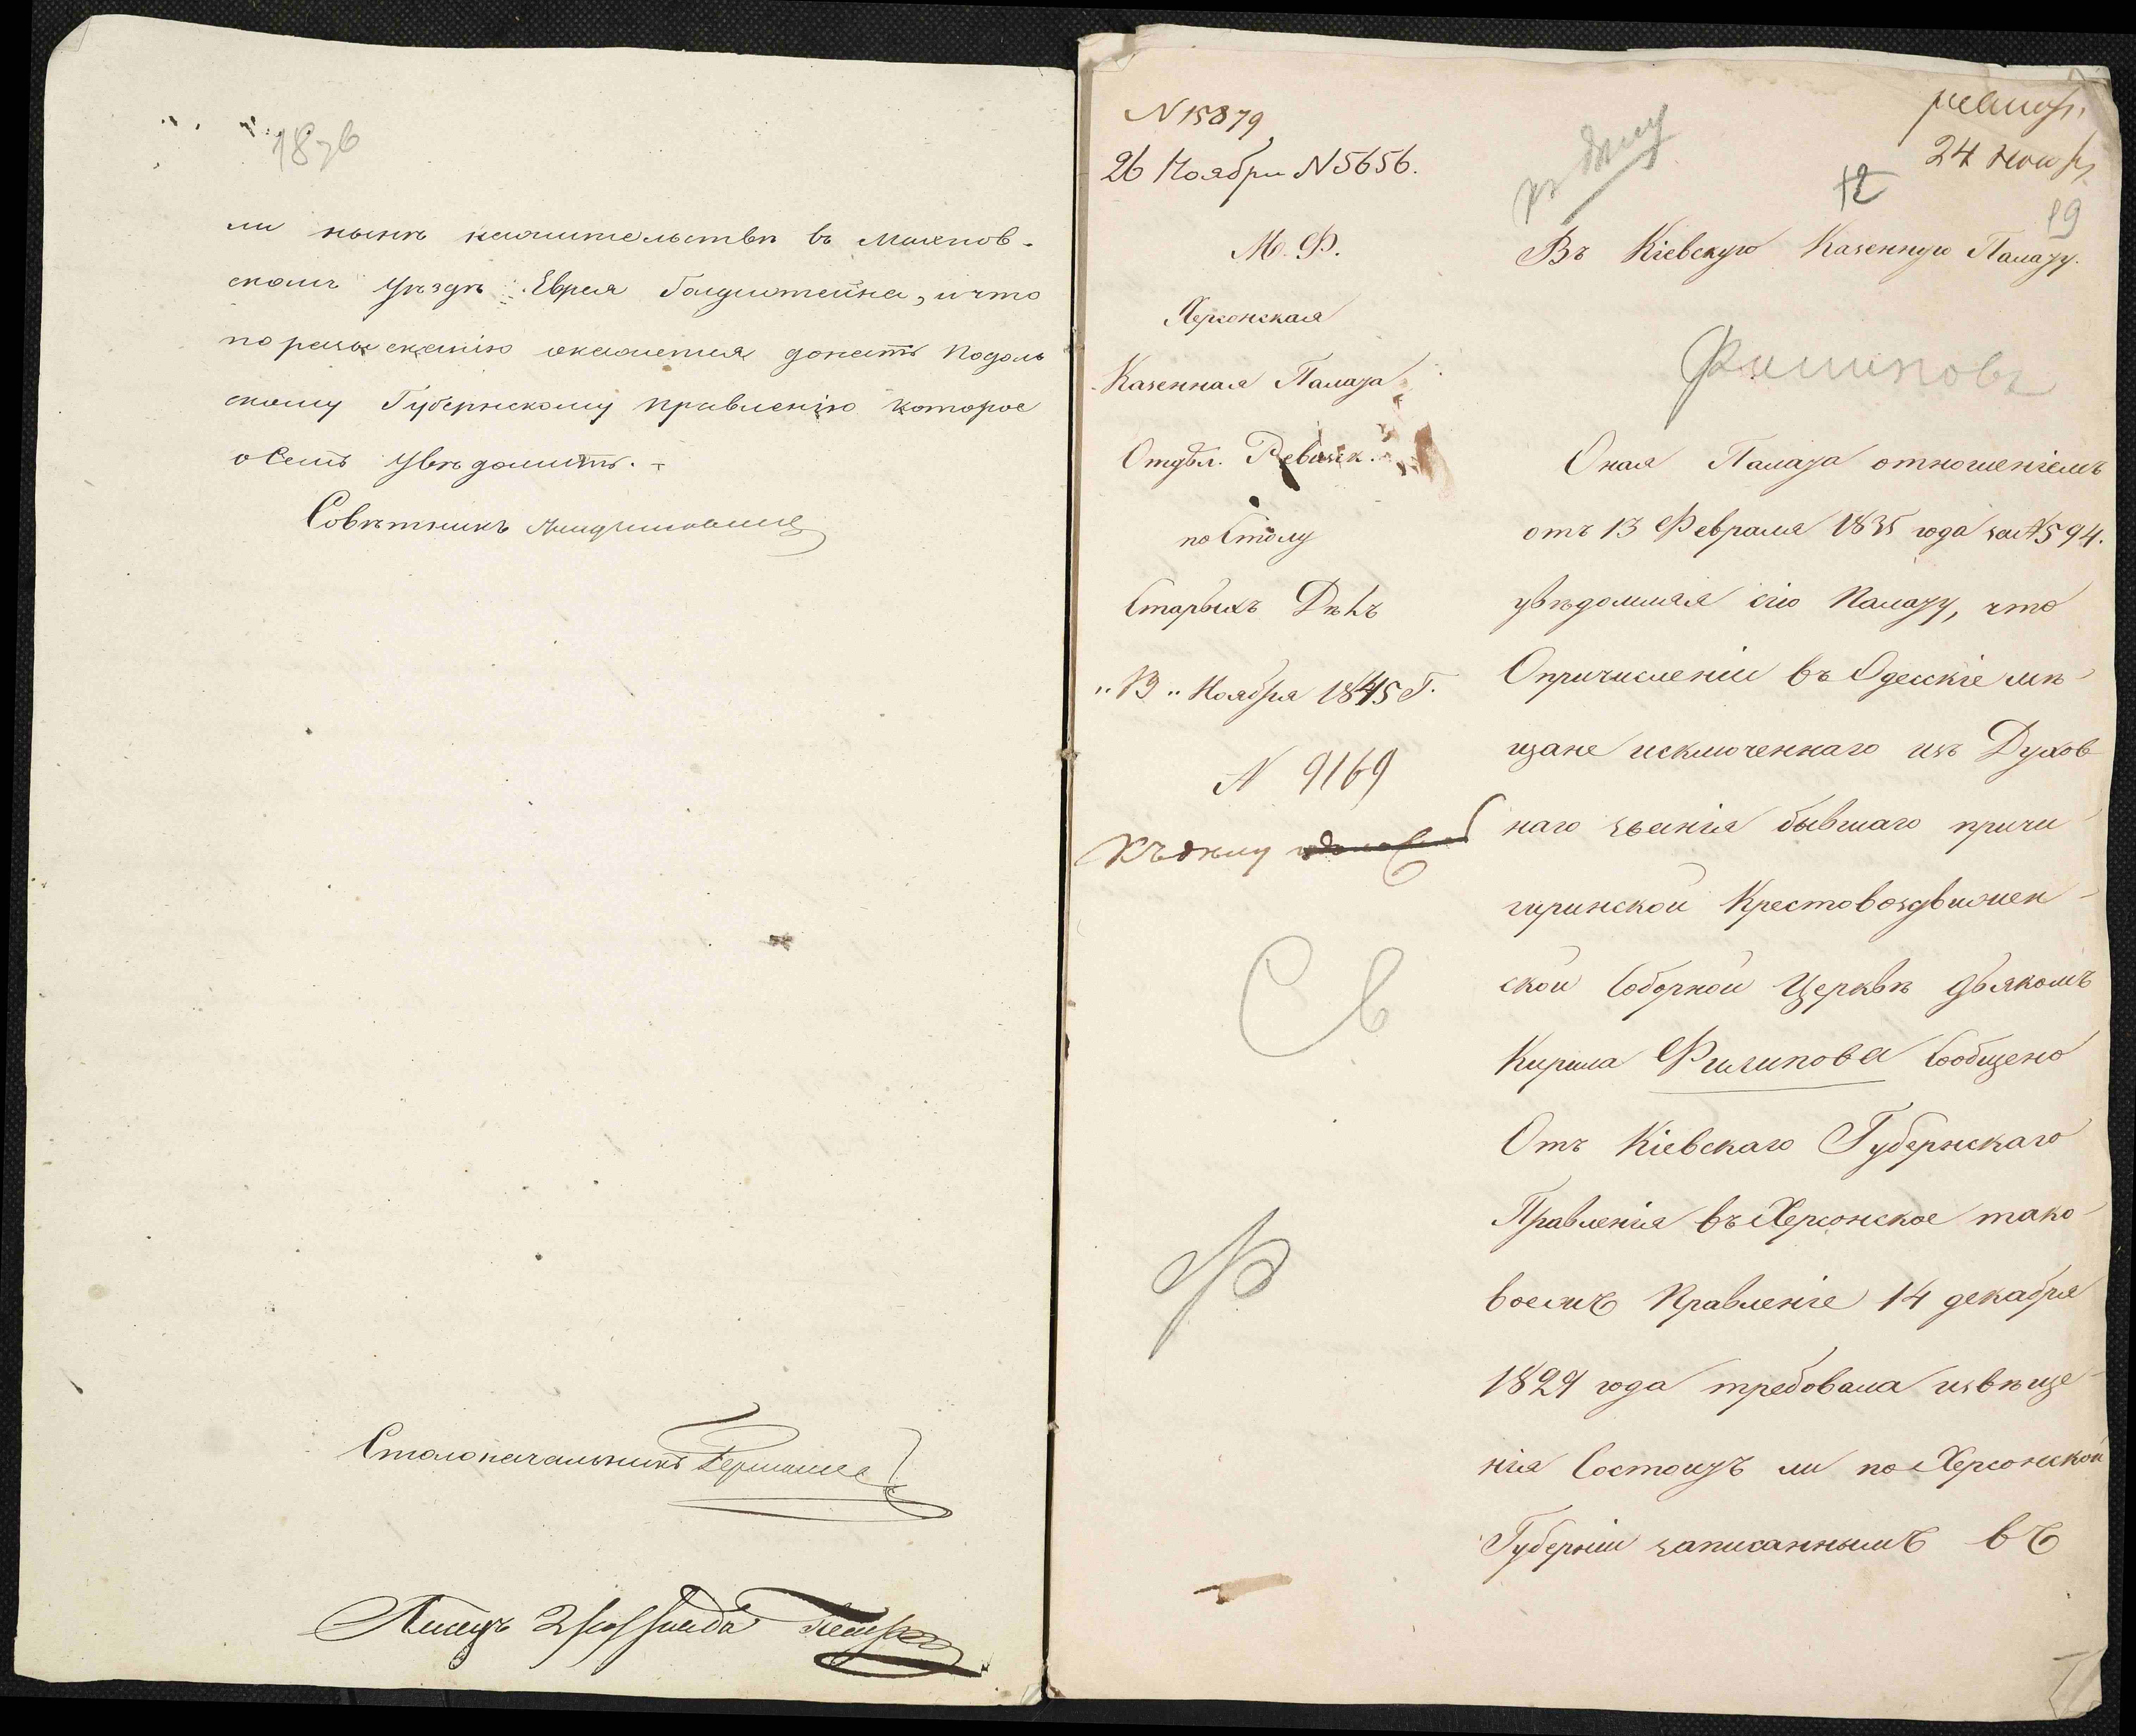 18 об
ли нынѣ жительствѣ въ Махнов-
скомъ уѣздѣ Еврея Гольдштейна, и что
по розысканію окажется донесть Подоль
скому Губернскому правленію которое
о семъ увѣдомить.
Совѣтникъ
Столоначальникъ
Писецъ
N 15879
26 Ноября N 5656.
М. Ф.
Херсонская
Казенная Палата
Отдѣл. Ревизск.
по Столу
Старыхъ Дѣлъ
"13" Ноября 1845 Г.
N 9169
Къ дѣлу
Св
Ф
къ дѣлу
24 нояб
12
19
Въ Кіевскую Казенную Палату.
Филиповъ
Оная Палата отношеніемъ
отъ 13 Февраля 1835 года за N 594.
увѣдомляя сію Палату, что
О причисленіи въ Одесскіе мѣ-
щане исключеннаго изъ Духов
наго званія бывшаго при чи
гиринской Крестовоздвижен-
ской Соборной Церквѣ дьякомъ
Кирила Филипова Сообщено
Отъ Кіевскаго Губернскаго
Правленія въ Херсонское тако
воежъ Правленіе 14 декабря
1829 года требовала извѣще-
нія Состоитъ ли по Херсонской
Губерніи записаннымъ въ